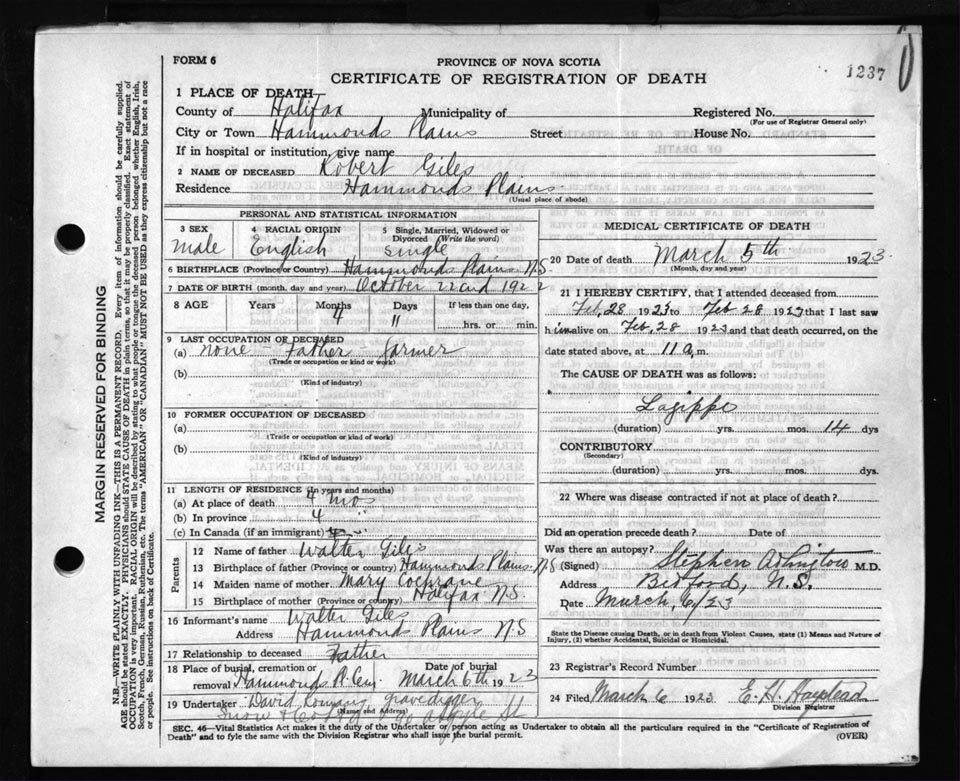 FORM 6
PROVINCE OF NOVA SCOTIA
CERTIFICATE OF REGISTRATION OF DEATH
1237
1 PLACE OF DEATH
County of Halifax Municipality of Registered No.
(For use of Registrar General only)
City or Town Hammonds Plains Street House No.
If in hospital or institution, give name
2 NAME OF DECEASED Robert Giles
Residence Hammonds Plains
(Usual place of abode)
PERSONAL AND STATISTICAL INFORMATION
3 SEX 4 RACIAL ORIGIN 5 Single, Married, Widowed or
Divorced (Write the word)
male English single
6 BIRTHPLACE (Province or Country) Hammonds Plains N.S.
7 DATE OF BIRTH (month, day and year) October 22nd 1922
8 AGE Years Months Days If less than one day,
4 11 hrs. or min.
9 LAST OCCUPATION OF DECEASED
(a) none - Father farmer
(Trade or occupation or kind of work)
(b)
(Kind of industry)
10 FORMER OCCUPATION OF DECEASED
(a)
(Trade or occupation or kind of work)
(b)
(Kind of industry)
11 LENGTH OF RESIDENCE (In years and months)
(a) At place of death 4 mos
(b) In province 4 "
(c) In Canada (if an immigrant)
Parents
12 Name of father Walter Giles
13 Birthplace of father (Province or Country) Hammonds Plains N S
14 Maiden name of mother Mary Cochrane
15 Birthplace of mother (Province or country) Halifax N.S.
16 Informant's name Walter Giles
Address Hammonds Plains N S
17 Relationship to deceased Father
18 Place of burial, cremation or Date of burial
removal Hammonds P. Cem. March 6th 1923
19 Undertaker David Romans gravedigger
(Name and address)
Snow
MEDICAL CERTIFICATE OF DEATH
20 Date of death March 5th 1923
(Month, day and year)
21 I HEREBY CERTIFY, that I attended deceased from
Feb. 28 1923 to Feb 28 1923 that I last saw
h im alive on Feb. 28 1923 and that death occurred, on the
date stated above, at 11 a. m.
The CAUSE OF DEATH was as follows:
Lagippe
(duration) yrs. mos. 14 dys
CONTRIBUTORY
(Secondary)
(duration) yrs. mos. dys.
22 Where was disease contracted if not at place of death?
Did an operation precede death? Date of
Was there an autopsy?
(Signed) Stephen M.D.
Address Bedford, N.S.
Date March, 6/23
State the Disease causing Death, or in death from Violent Causes, state (1) Means and Nature of
Injury, (2) whether Accidental, Suicidal or Homicidal.
23 Registrar's Record Number
24 Filed March 6 1923 E. H. Haystead
Division Registrar
SEC. 46—Vital Statistics Act makes it the duty of the Undertaker or person acting as Undertaker to obtain all the particulars required in the "Certificate of Registration of
Death" and to fyle the same with the Division Registrar who shall issue the burial permit.
(OVER)
MARGIN RESERVED FOR BINDING
N.B.—WRITE PLAINLY WITH UNFADING INK—THIS IS A PERMANENT RECORD. Every item of information should be carefully supplied.
AGE should be stated EXACTLY. PHYSICIANS should STATE CAUSE OF DEATH in plain terms, so that it may be properly classified. Exact statement of
OCCUPATION is very important. RACIAL ORIGIN will be described by stating to what people or tongue the deceased person belonged whether English, Irish,
Scotch, French, German, Russian, Ruthenian, etc. The terms "AMERICAN" OR "CANADIAN" MUST NOT BE USED as they express citizenship but not a race
or people. See instructions on back of Certificate.